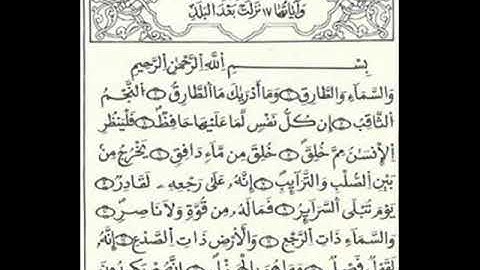 وَآيَاتُهَا ١٧ نَزَلَتْ بَعْدَ الْبَلَدِ
بِسْمِ اللَّهِ الرَّحْمَٰنِ الرَّحِيمِ
وَالسَّمَاءِ وَالطَّارِقِ ۝١ وَمَا أَدْرَىٰكَ مَا الطَّارِقُ ۝٢ النَّجْمُ
الثَّاقِبُ ۝٣ إِن كُلُّ نَفْسٍ لَّمَّا عَلَيْهَا حَافِظٌ ۝٤ فَلْيَنظُرِ
الْإِنسَٰنُ مِمَّ خُلِقَ ۝٥ خُلِقَ مِن مَّاءٍ دَافِقٍ ۝٦ يَخْرُجُ مِن
بَيْنِ الصُّلْبِ وَالتَّرَائِبِ ۝٧ إِنَّهُ عَلَىٰ رَجْعِهِ لَقَادِرٌ ۝٨
يَوْمَ تُبْلَى السَّرَائِرُ ۝٩ فَمَا لَهُ مِن قُوَّةٍ وَلَا نَاصِرٍ ۝١٠
وَالسَّمَاءِ ذَاتِ الرَّجْعِ ۝١١ وَالْأَرْضِ ذَاتِ الصَّدْعِ ۝١٢ إِنَّهُ
لَقَوْلٌ فَصْلٌ ۝١٣ وَمَا هُوَ بِالْهَزْلِ ۝١٤ إِنَّهُمْ يَكِيدُونَ